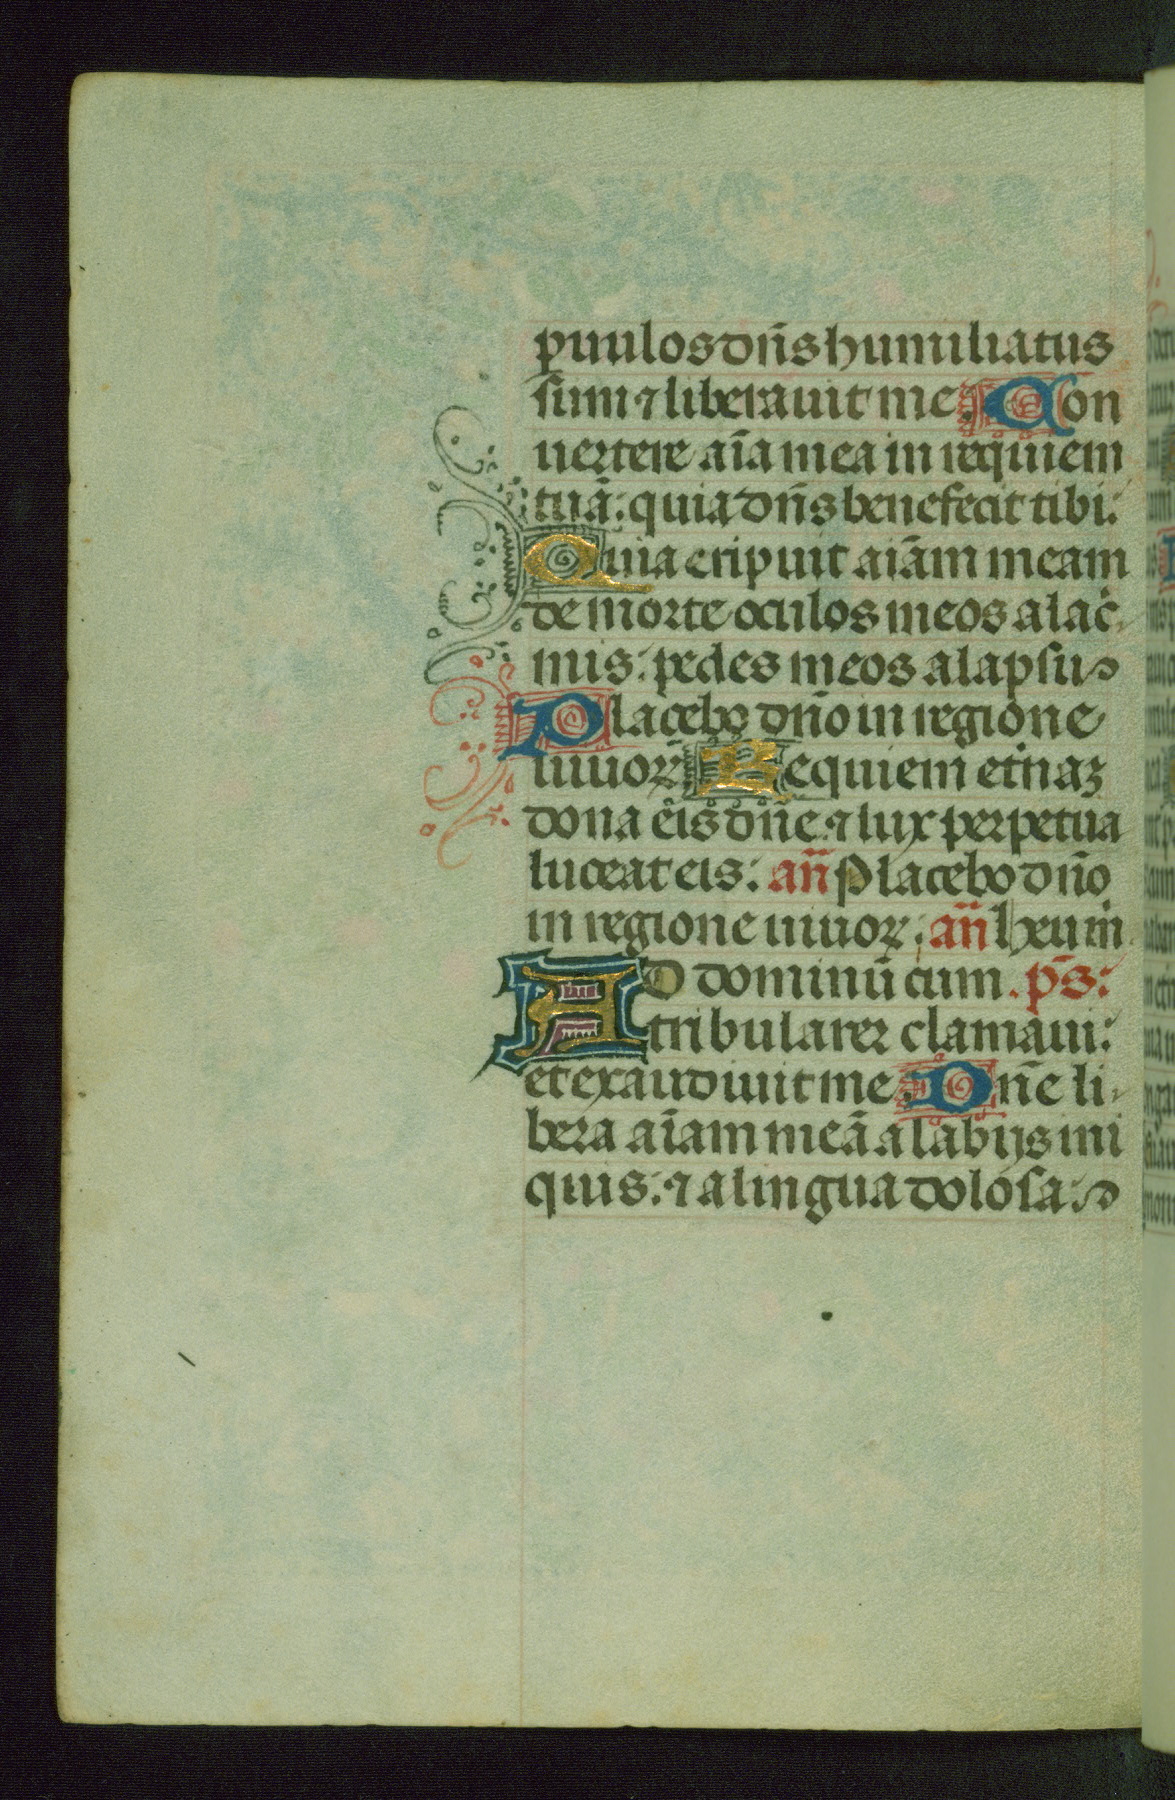 puulos dn̄s humiliatus
sum ⁊ liberauit me. Con
uertere aīa mea in requiem
tuā: quia dn̄s benefecit tibi:
Quia eripuit aīam meam
de morte oculos meos a lac̄
mis: pedes meos a lapsu
Placebo dn̄o in regione
uiuoꝝ Requiem etnaꝫ
dona eis dn̄e: ⁊ lux perpetua
luceat eis: an̄ Placebo dn̄o
in regione uiuoꝝ: an̄ heu m̄
AD dominū cum. ps̄:
tribularer clamaui:
et exaudiuit me Dn̄e li
bera aīam meā a labijs ini
quis: ⁊ a lingua dolosa: